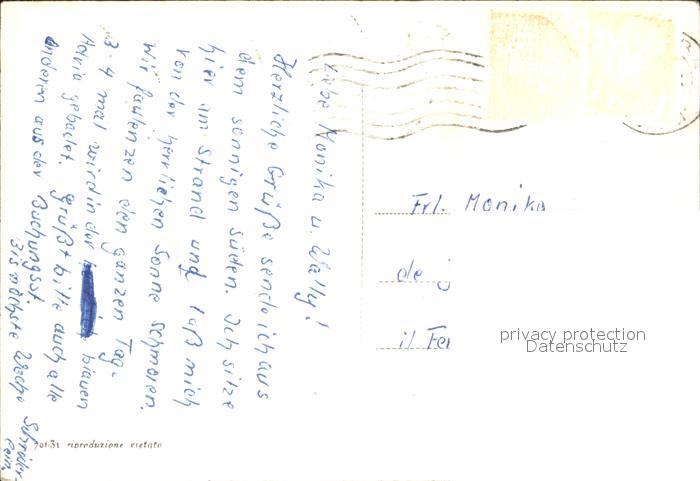 Liebe Monika u. Wally!
Herzliche Grüße sende ich aus
dem sonnigen Süden. Ich sitze
hier am Strand und laß mich
von der herrlichen Sonne schmoren.
Wir faulenzen den ganzen Tag.
3-4 mal wird in der blauen
Adria gebadet. Grüßt bitte auch alle
anderen aus der Buchungsst.
Bis nächste Woche
Frl. Monika
de j
il Fer
privacy protection
Datenschutz
701-31 riproduzione vietata